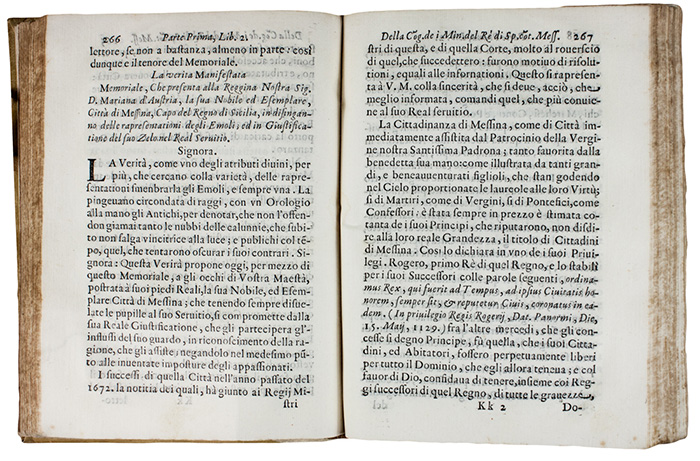 266 Parte Prima, Lib. 2.
lettore, se non a bastanza, almeno in parte: così
dunque e il tenore del Memoriale.
La verita Manifestata
Memoriale, Che presenta alla Reggina Nostra Sig.
D. Mariana d'Austria, la sua Nobile ed Esemplare,
Città di Messina, Capo del Regno di Sicilia, in disingan-
no delle rapresentationi degli Emoli; ed in Giustifica-
tione del suo Zelo nel Real Seruitio.
Signora.
LA Verità, come vno degli atributi diuini, per
più, che cercano colla varietà, delle rapre-
sentationi smenbrarla gli Emoli, e sempre vna. La
pingeuano circondata di raggi, con vn Orologio
alla mano gli Antichi, per denotar, che non l'offen-
don giamai tanto le nubbi delle calunnie, che subi-
to non salga vincitrice alla luce; e publichi col tē-
po, quel, che tentarono oscurar i suoi contrari. Si-
gnora: Questa Verità propone oggi, per mezzo di
questo Memoriale, a gli occhi di Vostra Maestà,
postrata à suoi piedi Reali, la sua Nobile, ed Esem-
plare Città di Messina; che tenendo sempre difue-
late le pupille al suo Seruitio, si compromette dalla
sua Real Giustificatione, che gli partecipera gl'-
influssi del suo guardo, in riconoscimento della ra-
gione, che gli assiste; negandolo nel medesimo pū-
to alle inuentate imposture degli appassionati.
I successi di quella Città nell'anno passato del
1672. la notitia dei quali, hà giunto ai Regij Mi-
stri
Della Cog. de i Min. del Rè di Sp. cōt. Mess. 267
stri di questa, e di quella Corte, molto al rouerscio
di quel, che succedettero: furono motiuo di risolu-
tioni, equali alle infornationi. Questo si rapresen-
ta à V. M. colla sincerità, che si deue, acciò, che
meglio informata, comandi quel, che più conuie-
ne al suo Real seruitio.
La Cittadinanza di Messina, come di Città im
mediatamente assistita dal Patrocinio della Vergi-
ne nostra Santissima Padrona; tanto fauorita dalla
benedetta sua mano: come illustrata da tanti gran-
di, e beneauuenturati figlioli, che stan godendo
nel Cielo proportionate le laureole alle loro Virtù;
si di Martiri, come di Vergini, si di Pontefici, come
Confessori: è stata sempre in prezzo è stimata co-
tanta de i suoi Principi, che riputarono, non disdi-
re alla loro reale Grandezza, il titolo di Cittadini
di Messina. Così lo dichiara in vno de i suoi Priui-
legi. Rogero, primo Rè di quel Regno, e lo stabilì
per i suoi Successori colle parole seguenti, ordina-
mus Rex, qui fuerit ad Tempus, ad ipsius Ciuitatis ho-
norem, semper sit, & reputetur Ciuis, coronatus in ea-
dem. (In priuilegio Regis Rogerij, Dat. Panormi, Die,
15. Maij, 1129.) fra l'altre mercedi, che gli con-
cesse si degno Principe, fù quella, che i suoi Cittae-
dini, ed Abitatori, fossero perpetuamente liberi
per tutto il Dominio, che egli allora teneua; e col
fauor di Dio, confidaua di tenere, insieme coi Reg-
gi successori di quel Regno, di tutte le grauezze,
Kk 2 Do-